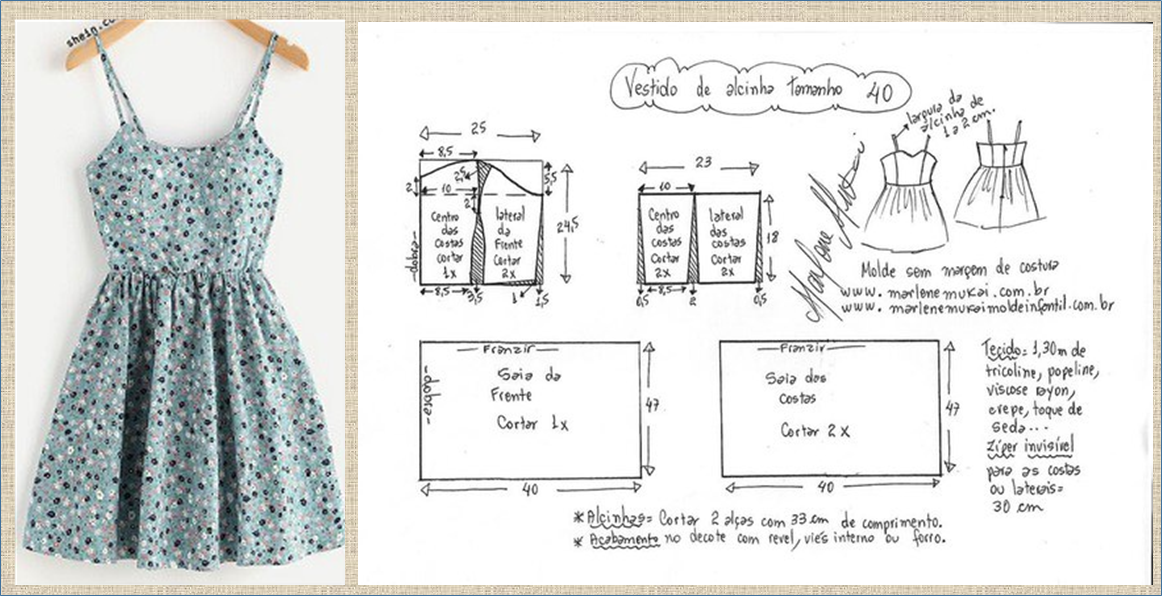 shein.co
Vestido de alcinha Tamanho 40
largura da
alcinha de
1 a 2 cm.
25
8,5
2,5
5,5
2
10
2
24,5
Centro
das
Costas
cortar
1x
lateral
da
Frente
Cortar
2x
dobra
8,5
3,5
1
1,5
23
10
18
Centro
das
costas
Cortar
2x
lateral
das
costas
Cortar
2x
0,5
8,5
2
0,5
Marlene Mukai
Molde sem margem de costura
www. marlenemukai.com.br
www. marlenemukaimoldeinfantil.com.br
Franzir
Saia da
Frente
Cortar 1x
dobra
47
40
Franzir
Saia das
Costas
Cortar 2x
47
40
Tecido= 1,30m de
tricoline, popeline,
viscose rayon,
crepe, toque de
seda...
Zíper invisível
para as costas
ou laterais=
30 cm
* Alcinhas= Cortar 2 alças com 33 cm de comprimento.
* Acabamento no decote com revel, viés interno ou forro.